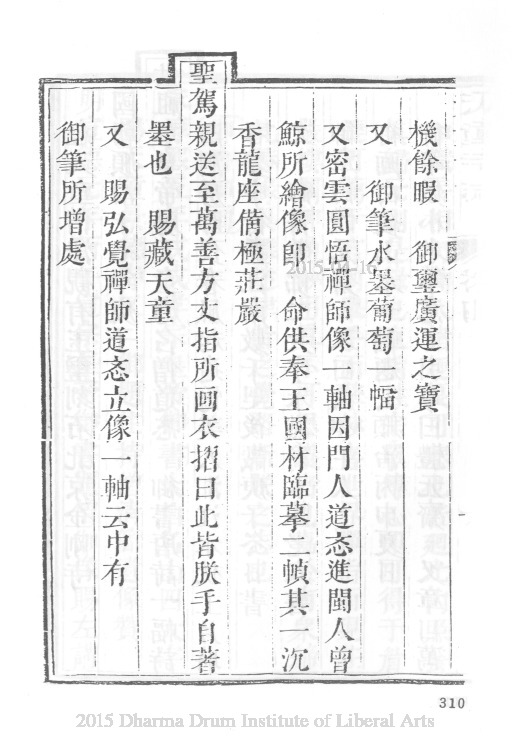 機餘暇　御璽廣運之寶
又　御筆水墨葡萄一幅
又密雲圓悟禪師像一軸因門人道忞進閩人曾
鯨所繪像卽　命供奉王國材臨摹二幀其一沉
香龍座備極莊嚴
聖駕親送至萬善方丈指所画衣摺曰此皆朕手自著
墨也　賜藏天童
又　賜弘覺禪師道忞立像一軸云中有
御筆所增處
310
2015-04-16
2015 Dharma Drum Institute of Liberal Arts